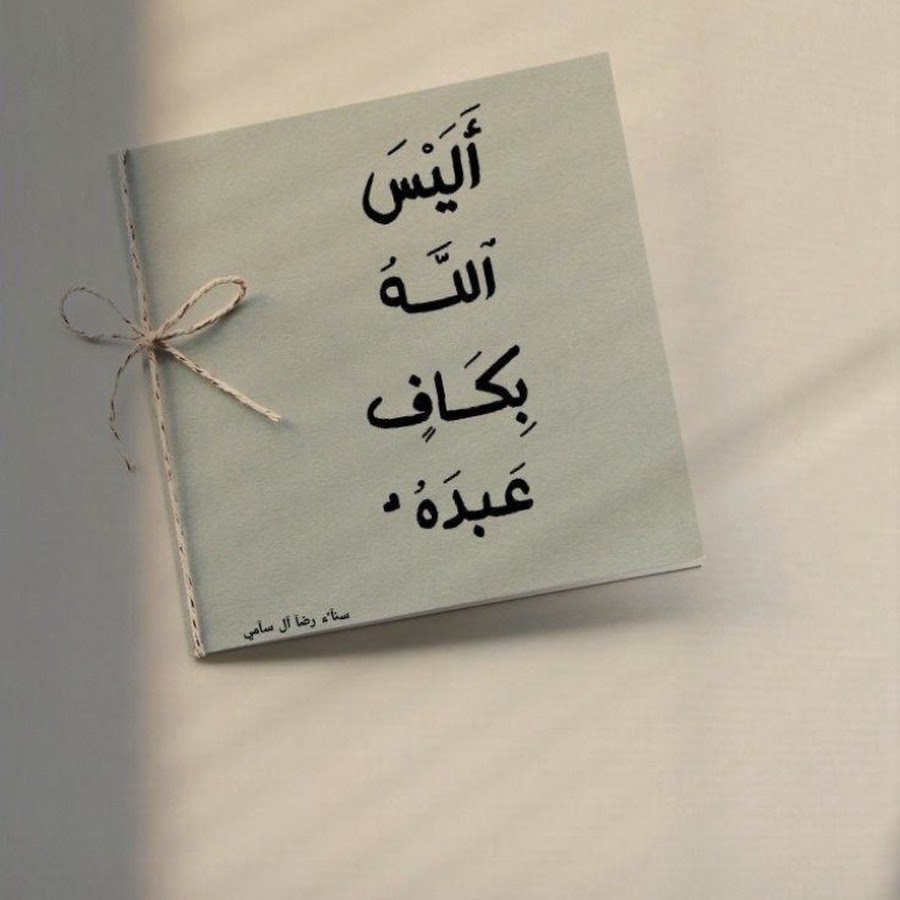 أَلَيْسَ
ٱللَّـهُ
بِكَـافٍ
عَبدَهُ ۥ
سنآء رضآ آل سآمي